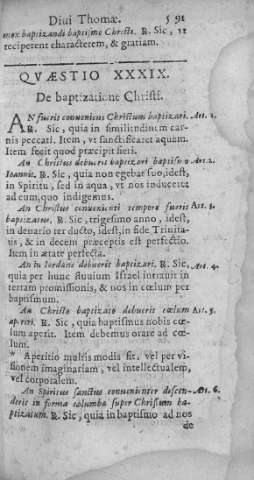 Diui Thomæ. 591
mox baptizandi baptismo Christi. R. Sic, vt
reciperent characterem, & gratiam.
QVÆSTIO XXXIX.
De baptizatione Christi.
AN fueris conueniens Christum baptizari. Art. 1.
R. Sic, quia in similitudinem car-
nis peccati. Item, vt sanctificaret aquam.
Item fecit quod præcipit fieri.
An Christus debuerit baptizari baptismo Art. 2.
Ioannis. R. Sic, quia non egebat suo, idest,
in Spiritu, sed in aqua, vt nos induceret
ad eum, quo indigemus.
An Christus conuenienti tempore fuerit Art. 3.
baptizatus. R. Sic, trigesimo anno, idest,
in denario ter ducto, idest, in fide Trinita-
tis, & in decem præceptis est perfectio.
Item in ætate perfecta.
An in Iordane debuerit baptizari. R. Sic, Art. 4.
quia per hunc fluuium Israel intrauit in
terram promissionis, & nos in cœlum per
baptismum.
An Christo baptizato debuerit cœlum Art. 5.
aperiri. R. Sic, quia baptismus nobis cœ-
lum aperit. Item debemus orare ad cœ-
lum.
* Aperitio multis modis fit, vel per vi-
sionem imaginariam, vel intellectualem,
vel corporalem.
An Spiritus sanctus conuenienter descen- Art. 6.
derit in forma columbæ super Christum ba-
ptizatum. R. Sic, quia in baptismo ad nos
de